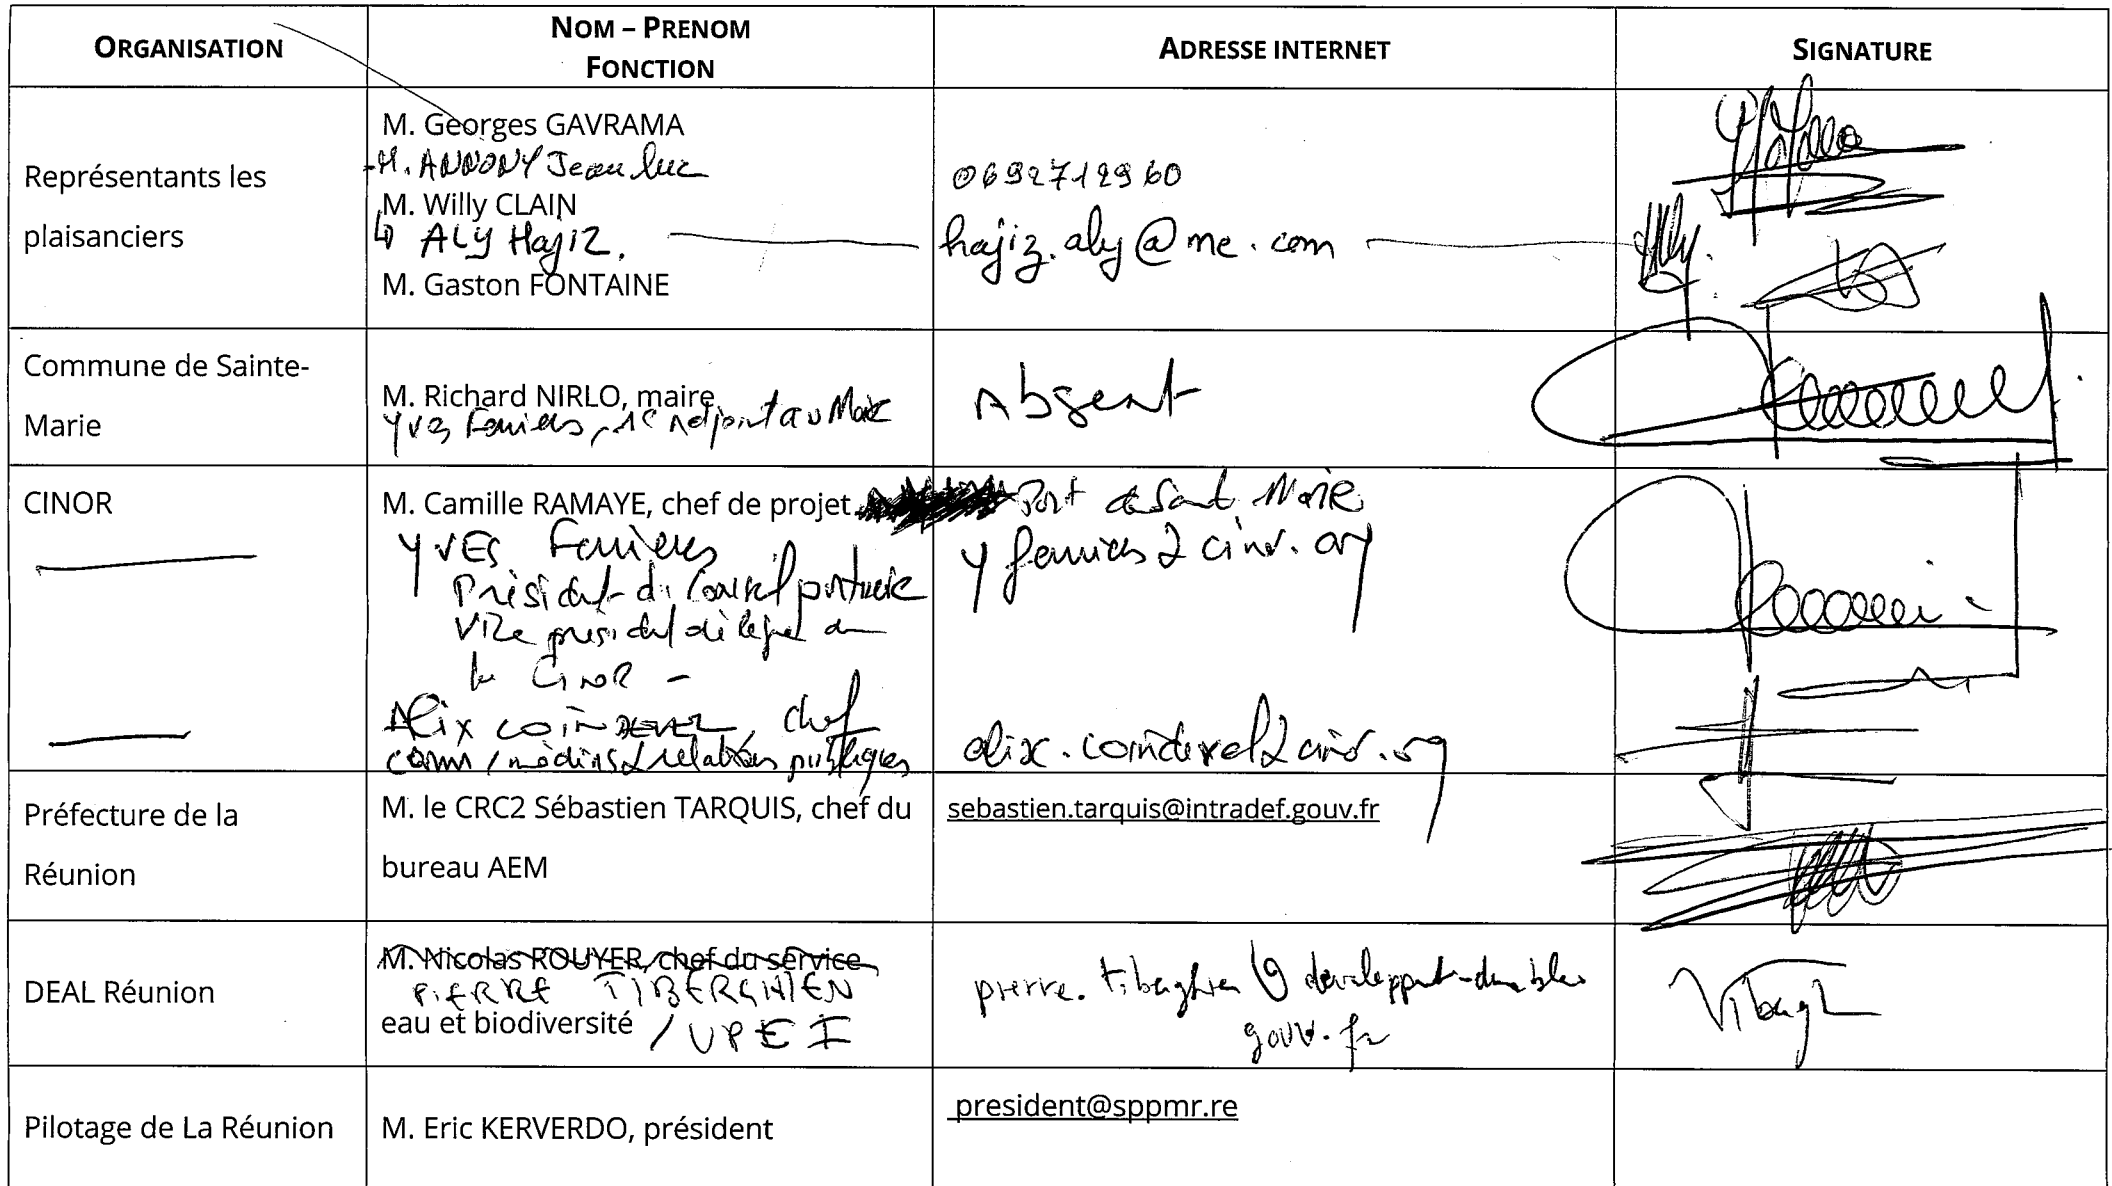 ORGANISATION
NOM – PRENOM
FONCTION
ADRESSE INTERNET
SIGNATURE
Représentants les
plaisanciers
M. Georges GAVRAMA
M. ANNONY Jean luc
M. Willy CLAIN
ALY Hajiz.
M. Gaston FONTAINE
0692712960
hajiz.aly@me.com
Commune de Sainte-
Marie
M. Richard NIRLO, maire
Yves Ferrières, 1e Adjoint au Maire
Absent
CINOR
M. Camille RAMAYE, chef de projet
Port de Sainte Marie
YVES Ferrières
Président du Conseil portuaire
Vice président délégué
la CINOR -
Alix COINDEVEL, chef
comm/médias & relations publiques
Préfecture de la
Réunion
M. le CRC2 Sébastien TARQUIS, chef du
bureau AEM
sebastien.tarquis@intradef.gouv.fr
DEAL Réunion
M. Nicolas ROUYER, chef du service
PIERRE TIBERGHIEN
eau et biodiversité /UPEI
gouv.fr
Pilotage de La Réunion
M. Eric KERVERDO, président
president@sppmr.re